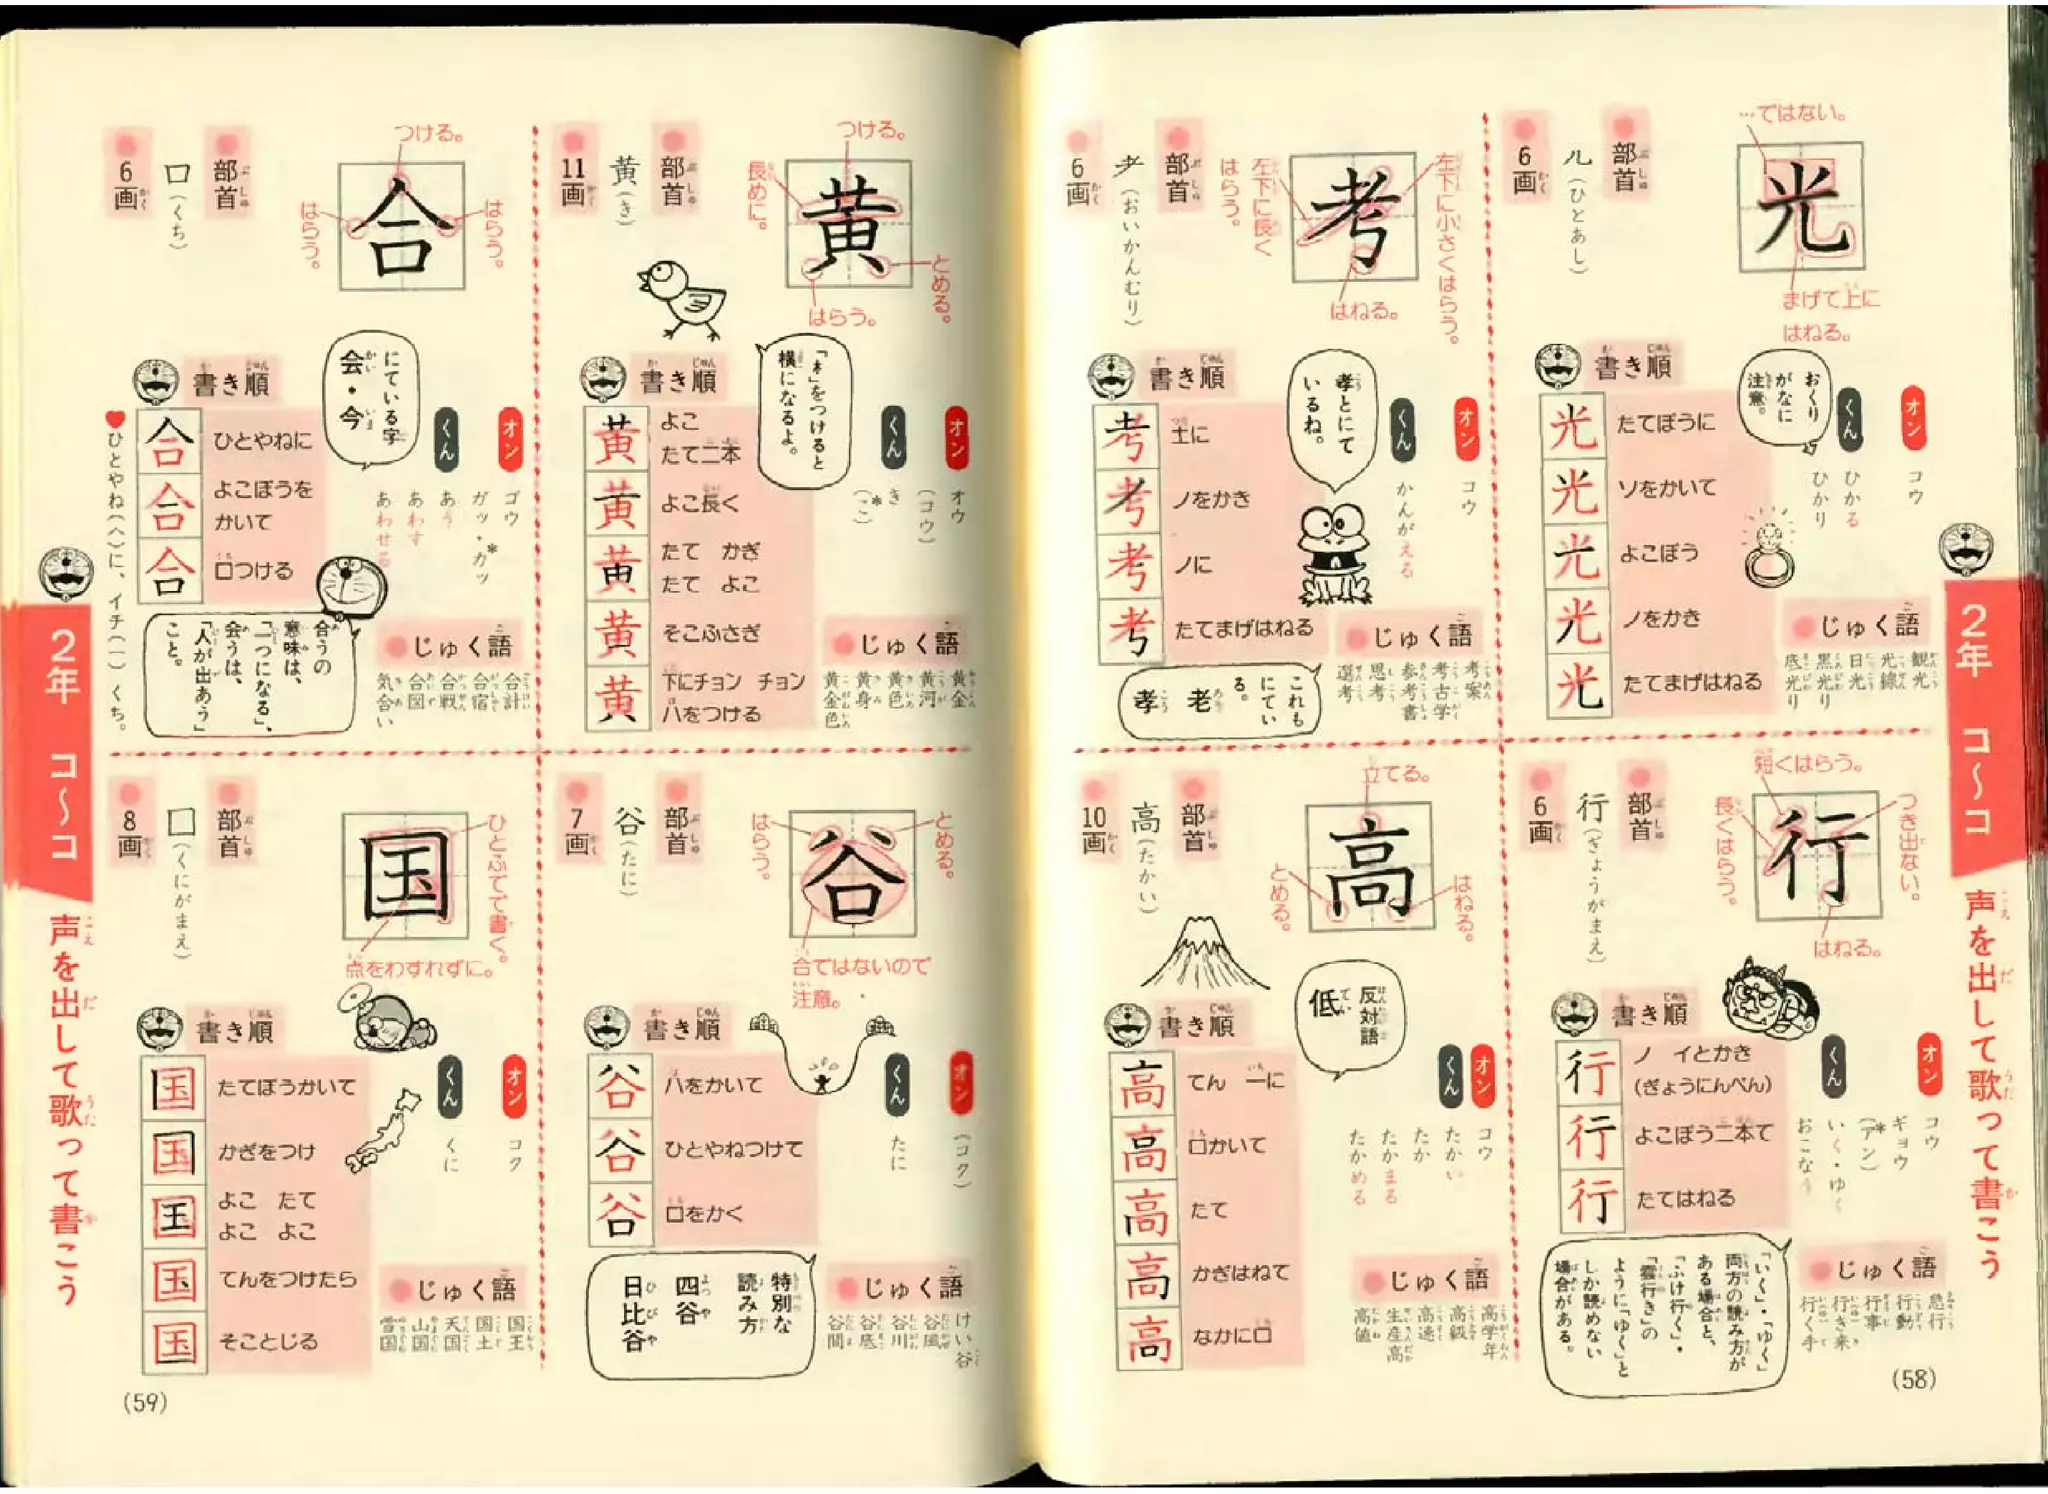 2年 コ〜コ
声を出して歌って書こう
光
…ではない。
まげて上に
はねる。
部首
儿(ひとあし)
6画
書き順
たてぼうに
ソをかいて
よこぼう
ノをかき
たてまげはねる
おくり
がなに
注意。
オン
コウ
くん
ひかる
ひかり
じゅく語
観光
光線
日光
黒光り
底光り
考
左下に小さくはらう。
左下に長く
はらう。
はねる。
部首
耂(おいかんむり)
6画
書き順
土に
ノをかき
ノに
たてまげはねる
孝とにて
いるね。
オン
コウ
くん
かんがえる
これも
にてい
る。
老
孝
じゅく語
考案
考古学
参考書
思考
選考
行
短くはらう。
つき出ない。
長くはらう。
はねる。
部首
行(ぎょうがまえ)
6画
書き順
ノ イとかき
(ぎょうにんべん)
よこぼう二本て
たてはねる
オン
コウ
ギョウ
(*アン)
くん
いく・ゆく
おこなう
「いく」・「ゆく」
両方の読み方が
ある場合と、
「ふけ行く」・
「雲行き」の
ように「ゆく」と
しか読めない
場合がある。
じゅく語
急行
行動
行事
行き来
行く手
(58)
高
立てる。
はねる。
とめる。
部首
高(たかい)
10画
書き順
てん 一に
口かいて
たて
かぎはねて
なかに口
反対語
低
オン
コウ
くん
たかい
たか
たかまる
たかめる
じゅく語
高学年
高級
高速
生産高
高値
黄
つける。
長めに。
とめる。
はらう。
部首
黄(き)
11画
書き順
よこ
たて二本
よこ長く
たて かぎ
たて よこ
そこふさぎ
下にチョン チョン
ハをつける
横になるよ。
オン
オウ
(コウ)
くん
き
(*こ)
じゅく語
黄金
黄河
黄色
黄身
黄金色
合
つける。
はらう。
はらう。
部首
口(くち)
6画
書き順
ひとやねに
よこぼうを
かいて
口つける
♥ひとやね(へ)に、イチ(一)くち。
にている字
会・今
オン
ゴウ
ガッ・*カッ
くん
あう
あわす
あわせる
合うの
意味は、
「一つになる」、
会うは、
「人が出あう」
こと。
じゅく語
合計
合宿
合戦
合図
気合い
谷
はらう。
とめる。
合ではないので
注意。
部首
谷(たに)
7画
書き順
ハをかいて
ひとやねつけて
口をかく
オン
(コク)
くん
たに
特別な
読み方
四谷
日比谷
じゅく語
けい谷
谷風
谷川
谷底
谷間
国
ひとふでで書く。
点をわすれずに。
部首
囗(くにがまえ)
8画
書き順
たてぼうかいて
かぎをつけ
よこ たて
よこ よこ
てんをつけたら
そことじる
オン
コク
くん
くに
じゅく語
国王
国土
天国
山国
雪国
(59)
2年 コ〜コ
声を出して歌って書こう